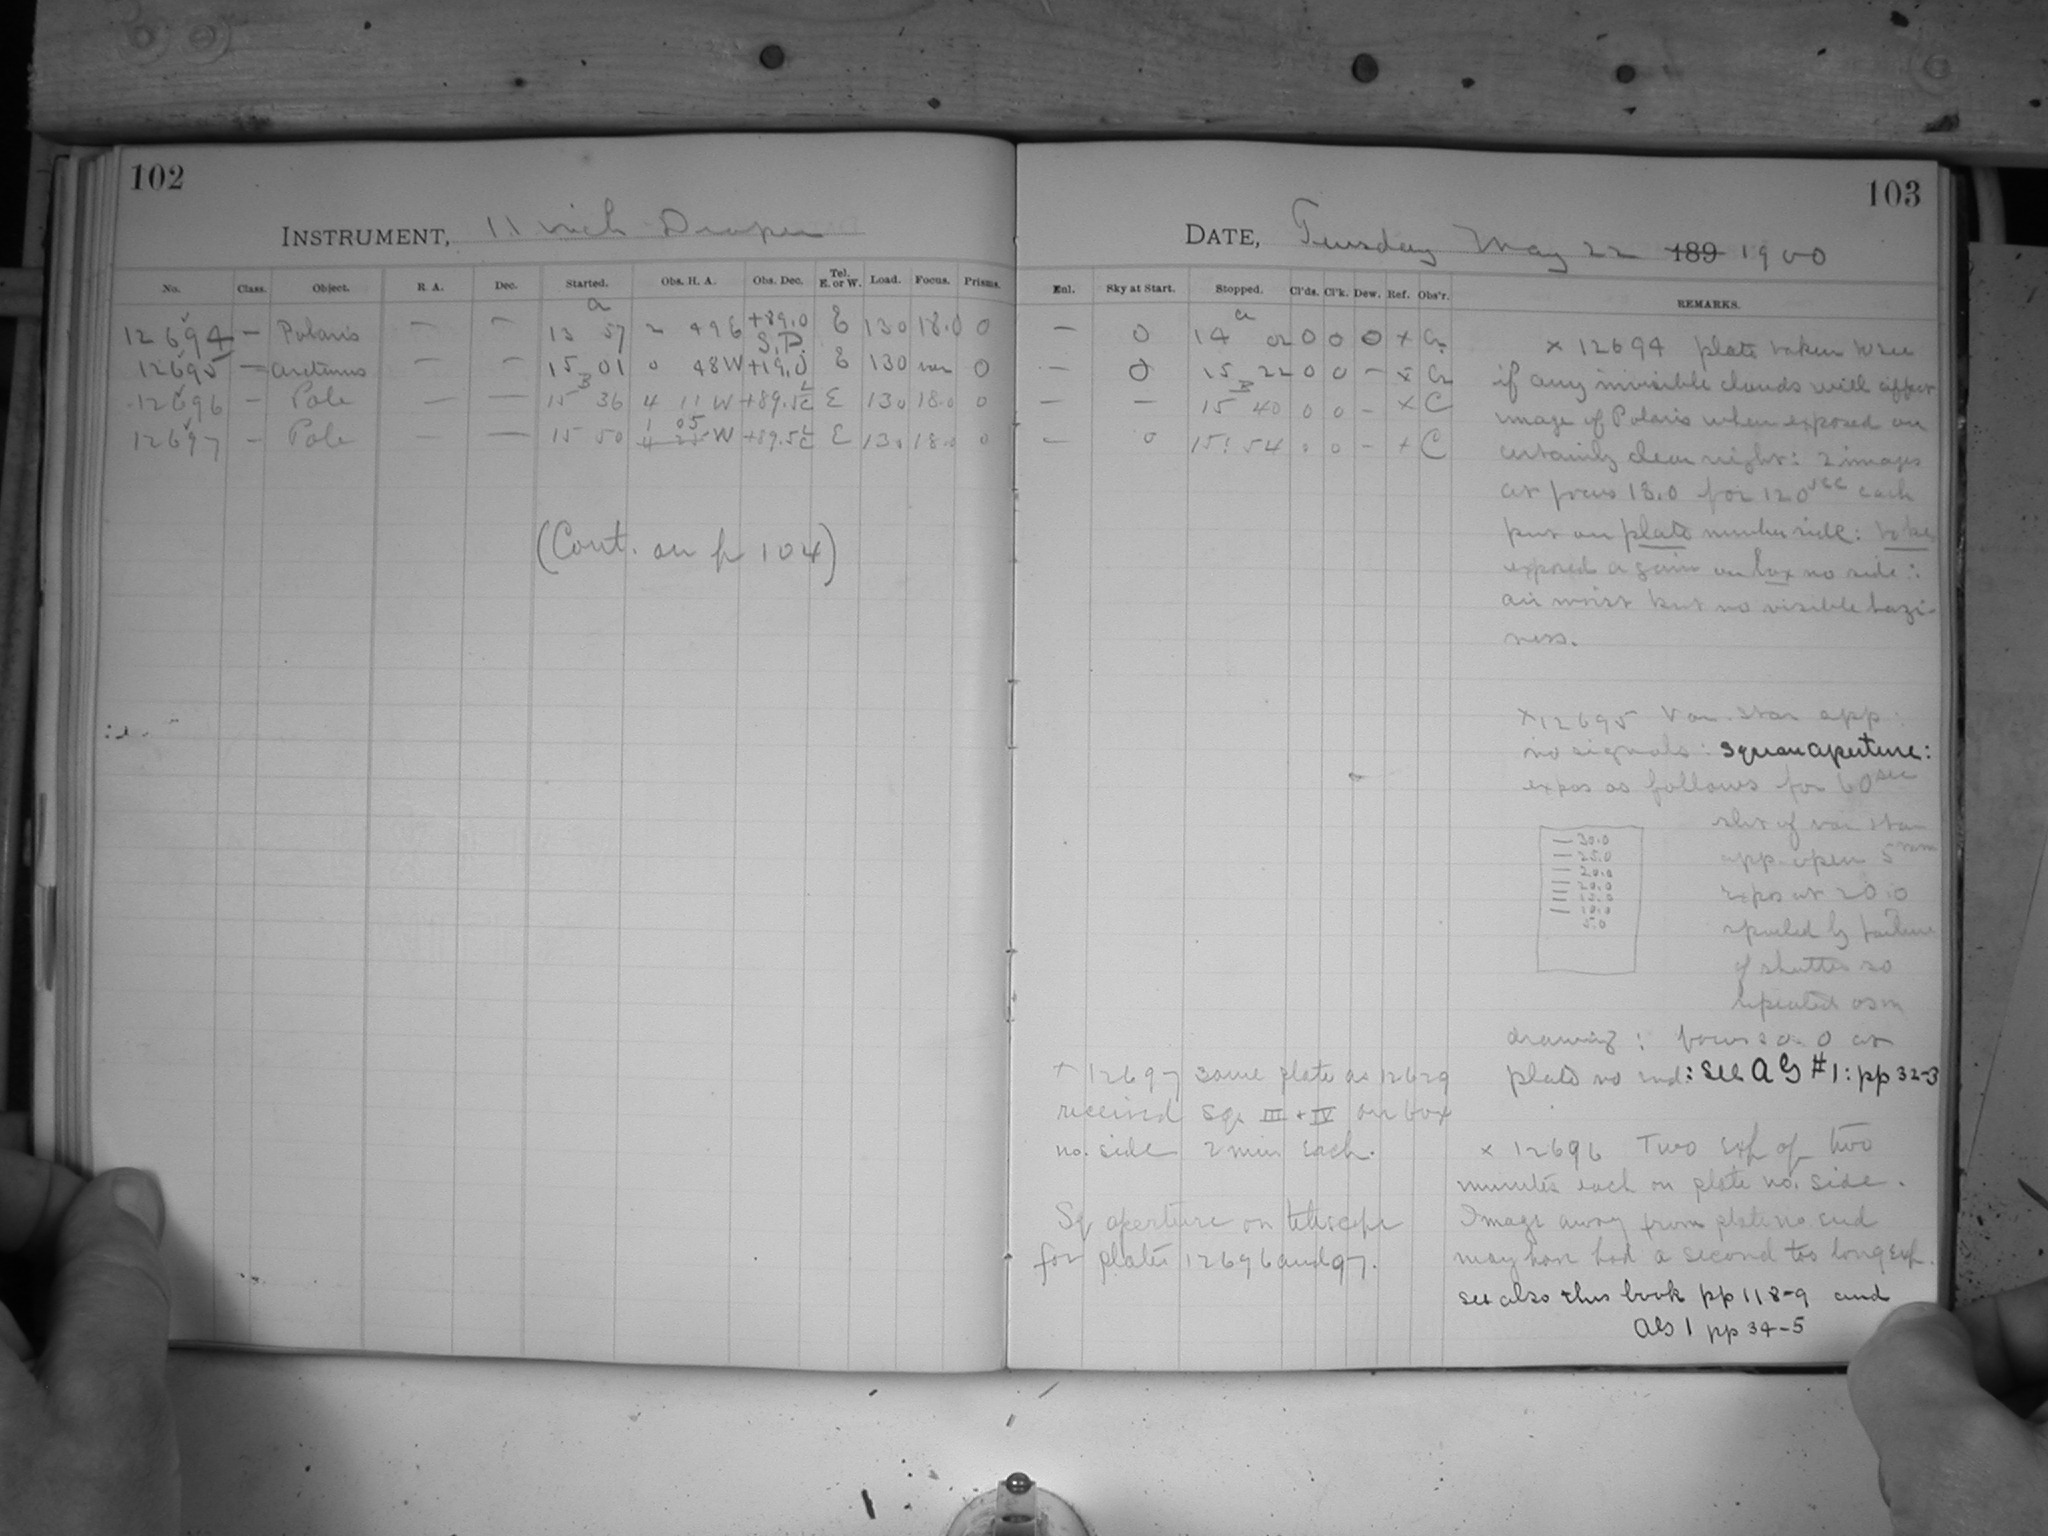 102
INSTRUMENT, 11 inch Draper
No. Class. Object. R A. Dec. Started. Obs. H. A. Obs. Dec. Tel. E. or W. Load. Focus. Prisms.
12694 — Polaris — — 13 57 2 49 E +89.0 S.P. E 130 18.0 0
12695 — Arcturus — — 15 01 0 48 W +19.0 E 130 var 0
12696 — Pole — — 15 36 4 11 W +89.5 E 130 18.0 0
12697 — Pole — — 15 50 4 25 1 05 W +89.5 E 130 18.0 0
(Cont. on p 104)
103
DATE, Tuesday May 22 189 1900
Enl. Sky at Start. Stopped. Cl'ds. Cl'k. Dew. Ref. Obs'r. REMARKS.
— 0 14 02 0 0 0 x
— 0 15 22 0 0 — x
— — 15 40 0 0 — x C
— 0 15: 54 0 0 — x C
x 12694 plate taken to see
if any invisible clouds will affect
image of Polaris when exposed on
certainly clear night: 2 images
at focus 18.0 for 120 sec each
put on plate number side:
exposed again on box no side:
air moist but no visible hazi-
ness.
x 12695 Var. star app:
no signals: square aperture:
expos as follows for 60 sec
slit of var star
app. open 5 mm
expos at 20.0
spoiled by failure
of shutter so
repeated as in
30.0
25.0
20.0
20.0
15.0
10.0
5.0
drawing: focus 30.0 at
plate no end: see AG #1: pp 32-3
x 12697 same plate as 12629
received Sqs III + IV on box
no. side 2 min each.
Sq aperture on telescope
for plates 12696 and 97.
x 12696 Two exp of two
minutes each on plate no. side.
Image away from plate no. end
may have had a second too long exp.
see also this book pp 118-9 and
AG 1 pp 34-5